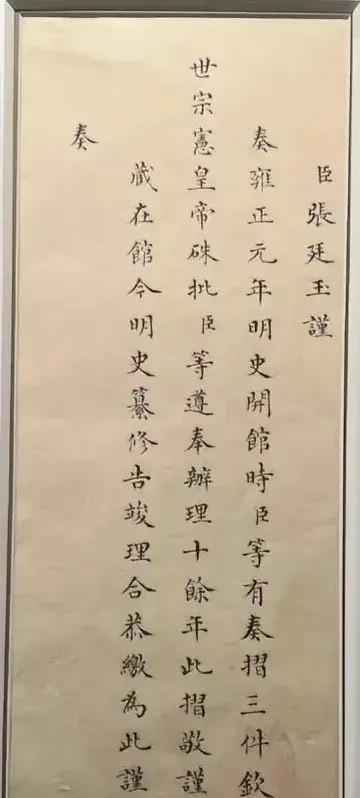 臣張廷玉謹
奏雍正元年明史開館時臣等有奏摺三件欽
世宗憲皇帝硃批臣等遵奉辦理十餘年此摺敬謹
藏在館今明史纂修告竣理合恭繳為此謹
奏